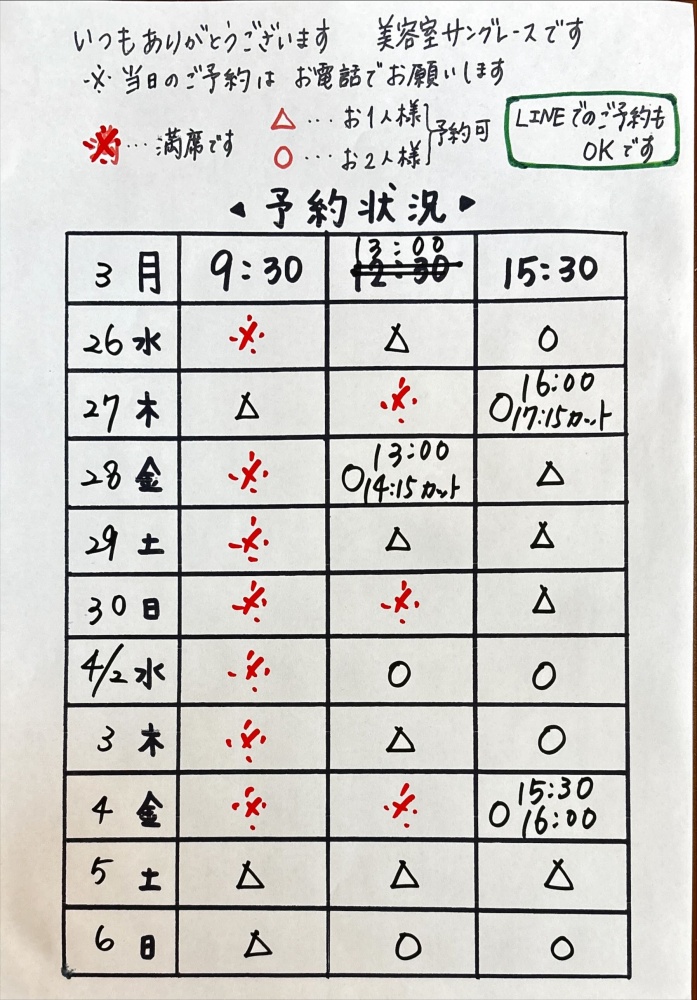 いつもありがとうございます 美容室サングレースです
※当日のご予約は お電話でお願いします
※…満席です
△…お1人様
○…お2人様
予約可
LINEでのご予約も
OKです
◀予約状況▶
3月 9:30 13:00 12:30 15:30
26水 ※ △ ○
27木 △ ※ ○16:00 17:15カット
28金 ※ ○13:00 14:15カット △
29土 ※ △ △
30日 ※ ※ △
4/2水 ※ ○ ○
3木 ※ △ ○
4金 ※ ※ ○15:30 16:00
5土 △ △ △
6日 △ ○ ○